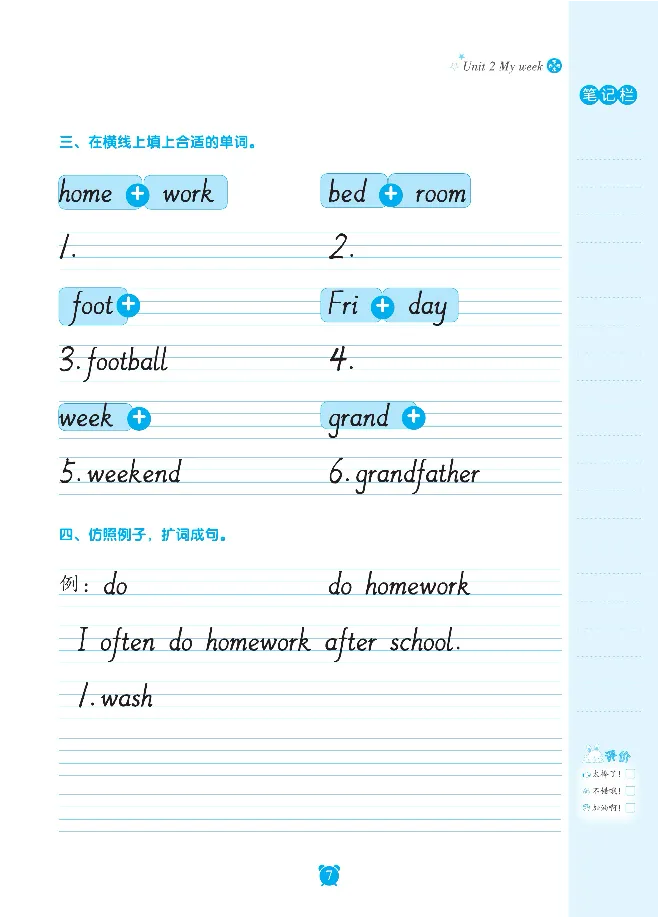 Unit 2 My week
笔记栏
三、在横线上填上合适的单词。
home + work
bed + room
1.
2.
foot +
Fri + day
3. football
4.
week +
grand +
5. weekend
6. grandfather
四、仿照例子，扩词成句。
例： do
do homework
I often do homework after school.
1. wash
评价
太棒了！
不错哦！
加油啊！
7